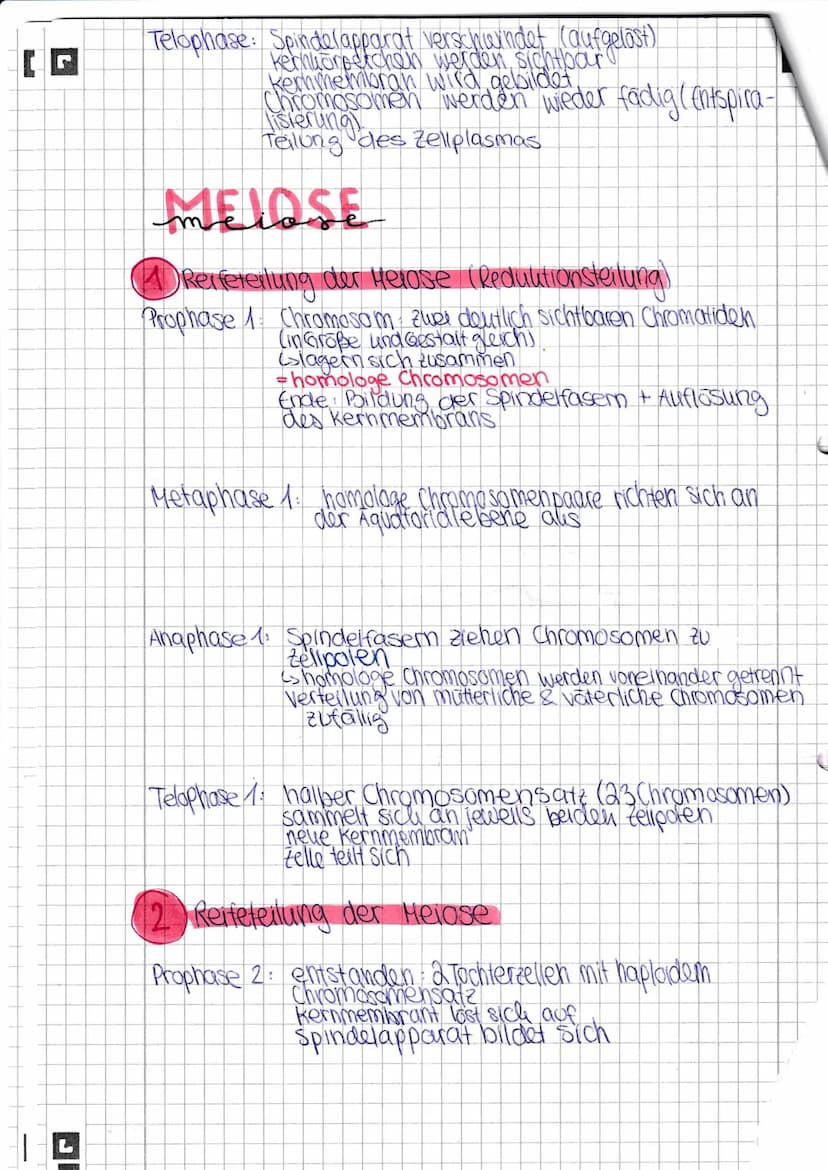 Telophase: Spindelapparat verschwindet (aufgelöst)
Kernkörperchen werden sichtbar
Kernmembran wird gebildet
Chromosomen werden wieder fädig (Entspira-
lisierung)
Teilung des Zellplasmas
MEIOSE
meiose
1 Reifeteilung der Meiose (Reduktionsteilung)
Prophase 1: Chromosom: zwei deutlich sichtbaren Chromatiden
(in Größe und Gestalt gleich)
↳lagern sich zusammen
=homologe Chromosomen
Ende: Bildung der Spindelfasern + Auflösung
des Kernmembrans
Metaphase 1: homologe Chromosomenpaare richten sich an
der Äquatorialebene aus
Anaphase 1: Spindelfasern ziehen Chromosomen zu
Zellpolen
↳homologe Chromosomen werden voneinander getrennt
Verteilung von mütterliche & väterliche Chromosomen
zufällig
Telophase 1: halber Chromosomensatz (23 Chromosomen)
sammelt sich an jeweils beiden Zellpolen
neue Kernmembran
Zelle teilt sich
2 Reifeteilung der Meiose
Prophase 2: entstanden: 2 Tochterzellen mit haploidem
Chromosomensatz
Kernmembrant löst sich auf
Spindelapparat bildet sich